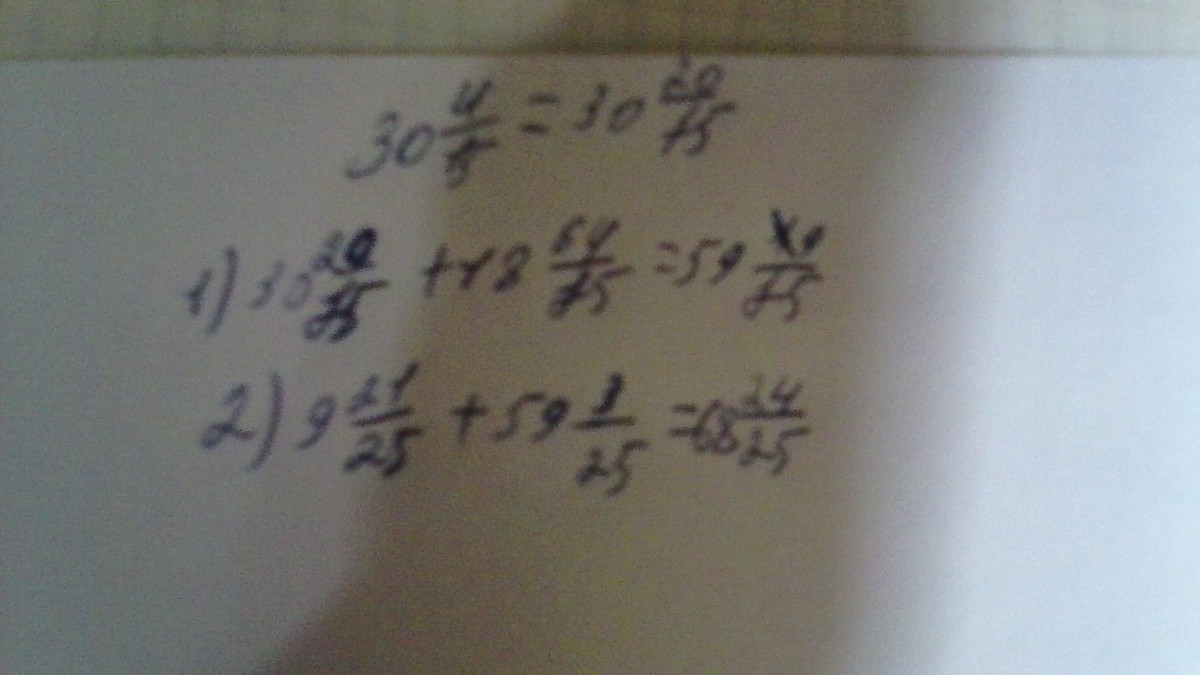 30 4/15 = 30 20/75
1) 30 20/75 + 28 64/75 = 59
2) 9 21/25 + 59 3/25 = 68 24/25